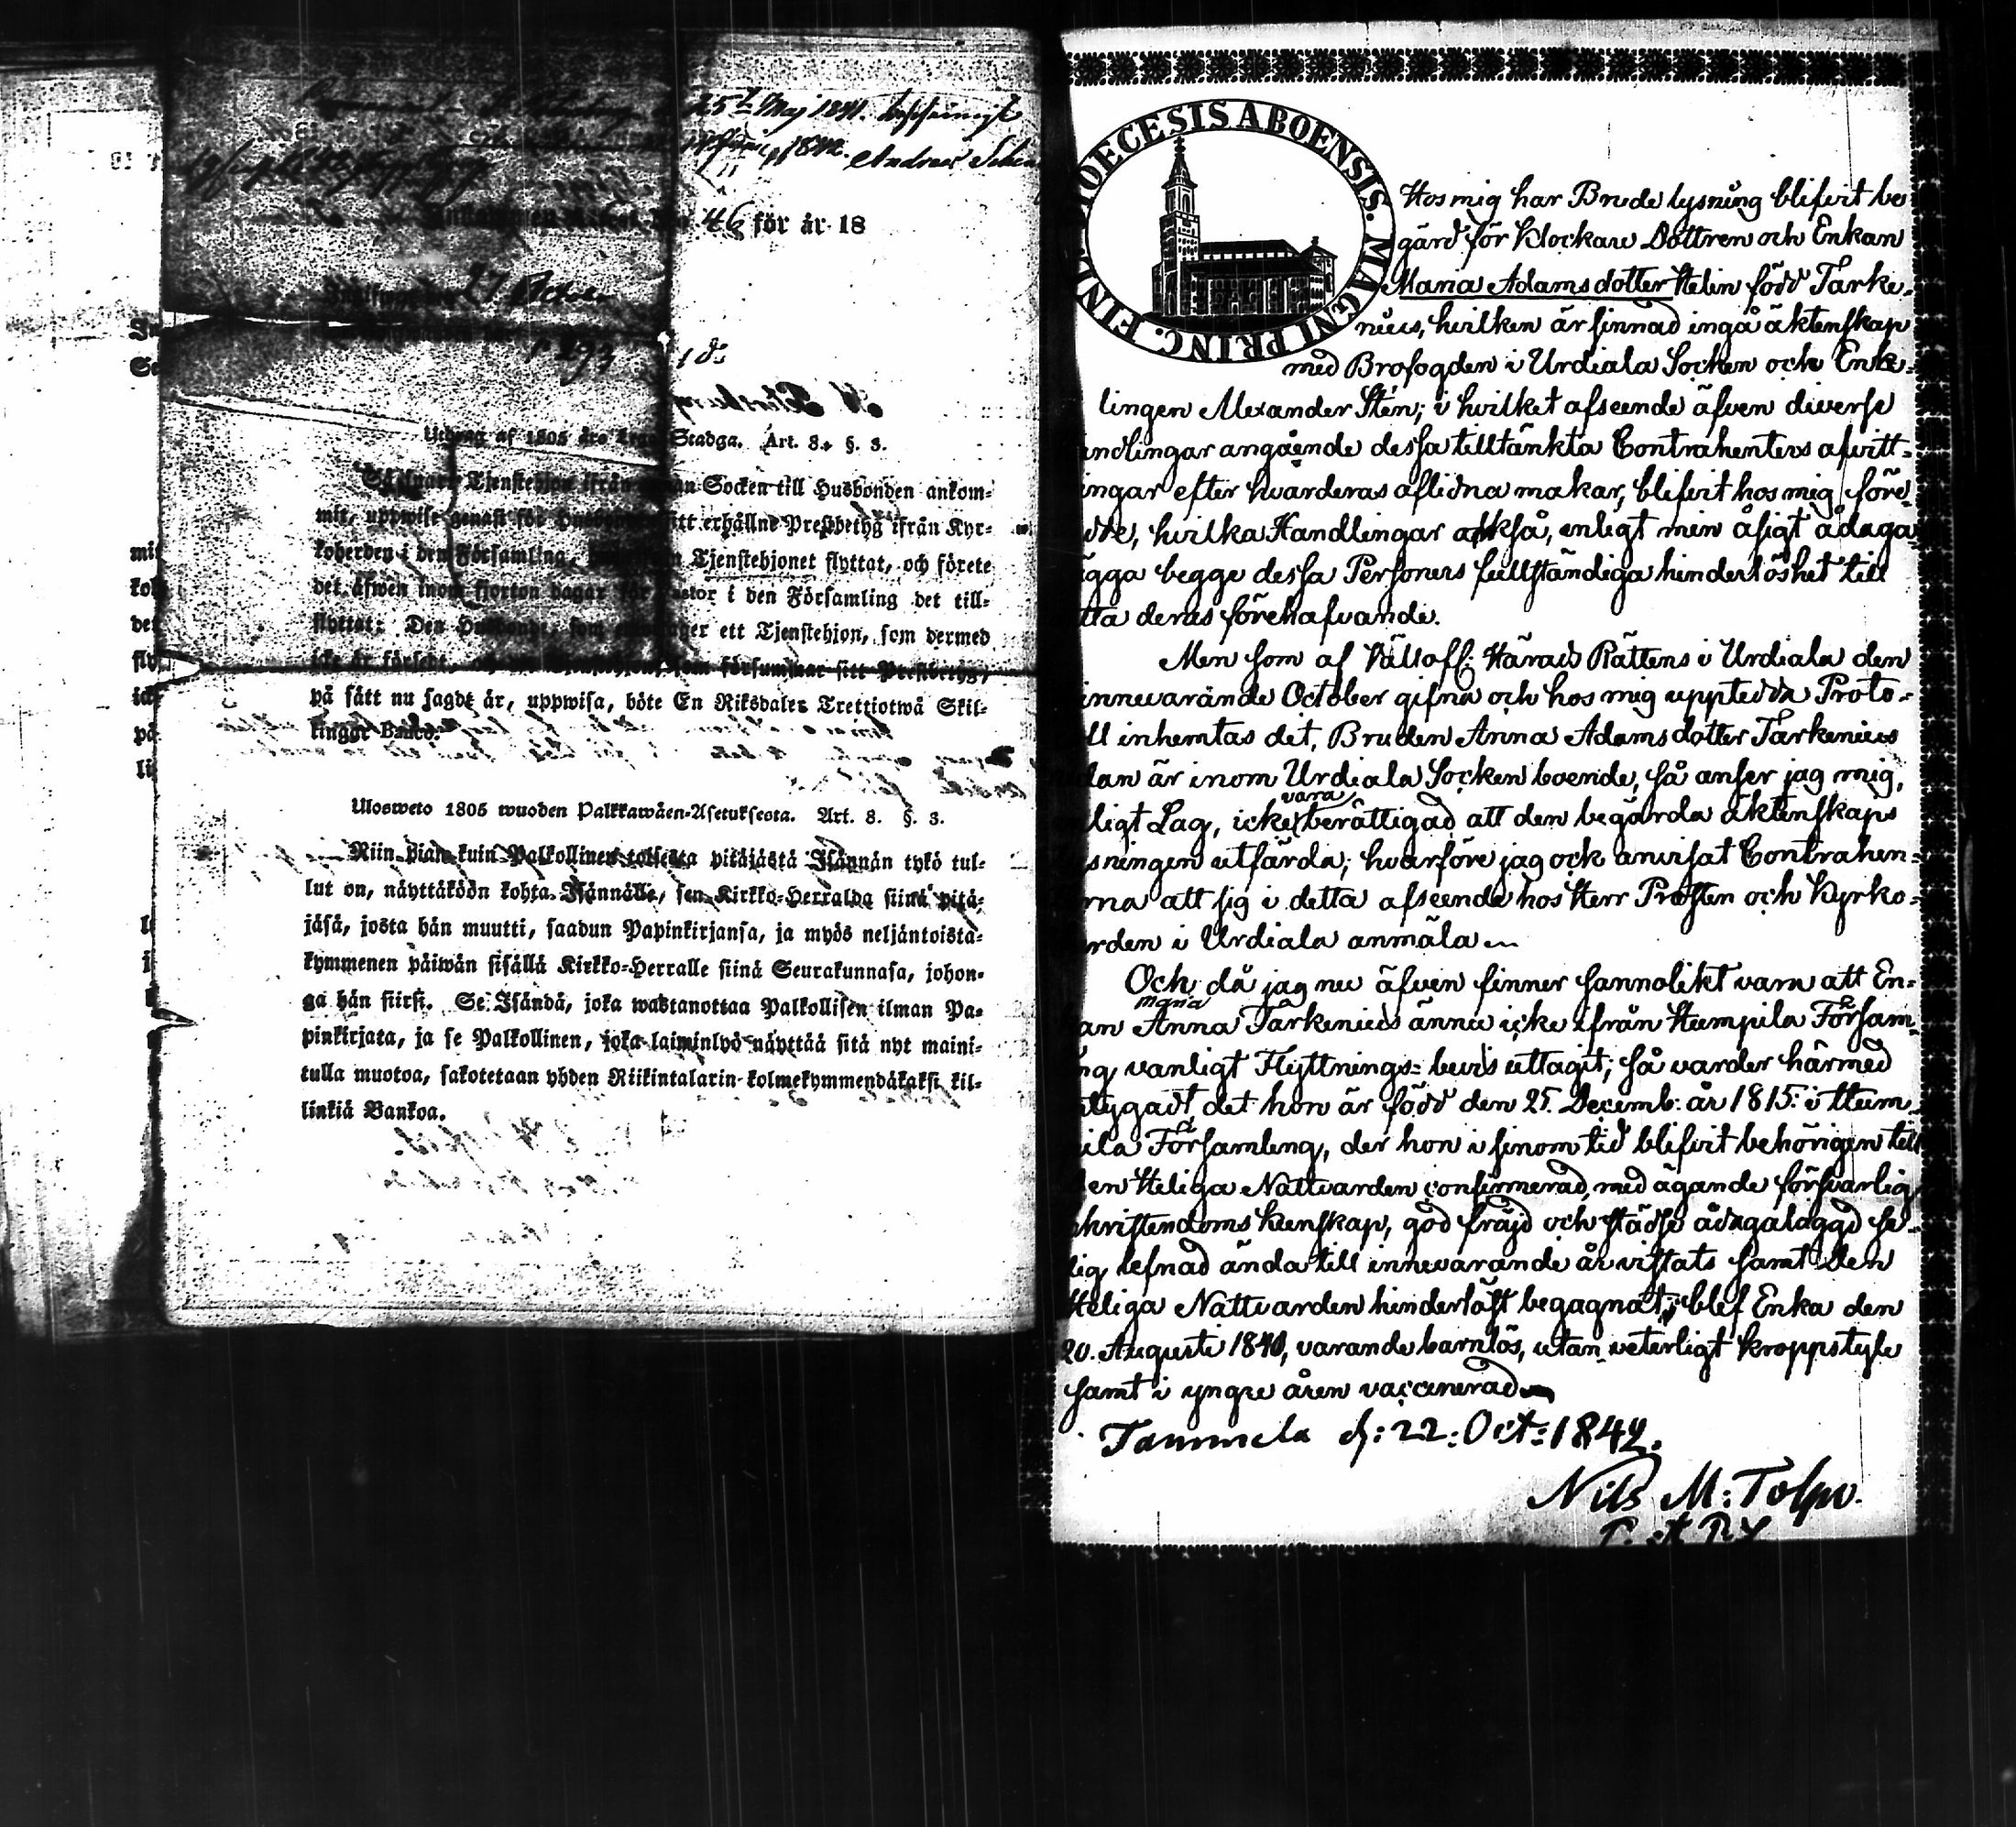 25te Maj 1841.
1842. Andreas
46 för år 18
27
Utdrag af 1805 års Lego Stadga. Art. 8. §. 3.
Såsnart Tjenstehjon ifrån annan Socken till Husbonden ankom-
mit, uppwise genast för Husbonden sitt erhållne Prestbethg ifrån Kyr-
koherden i den Församling, Tjenstehjonet flyttat, och förete
det äfwen inom fjorton dagar för Pastor i den Församling det till-
flyttat: Den Husbonde, som ett Tjenstehjon, som dermed
icke är försedt, som försummar sitt Prestbethg,
på sätt nu sagdt är, uppwisa, böte En Riksdaler Trettiotwå Skil-
lingar Banco.
Ulosweto 1805 wuoden Palkkawäen-Asetuksesta. Art. 8. §. 3.
Niin pian kuin Palkollinen toisesta pitäjästä Isännän tykö tul-
lut on, näyttäköön kohta Isännälle, sen Kirkko-Herralda siinä pitä-
jäsä, josta hän muutti, saadun Papinkirjansa, ja myös neljäntoista-
kymmenen päiwän sisällä Kirkko-Herralle siinä Seurakunnasa, johon-
ga hän siirsi. Se Isändä, joka wastanottaa Palkollisen ilman Pa-
pinkirjata, ja se Palkollinen, joka laiminlyö näyttää sitä nyt maini-
tulla muotoa, sakotetaan yhden Riikintalarin kolmekymmendäkaksi kil-
linkiä Bankoa.
DIOECESIS ABOENSIS. MAGNI PRINC. FINL.
Hos mig har Brudelysning blifvit be
gärd för Klockare Dottren och Enkan
Maria Adamsdotter Helin född Tarke-
nius, hvilken är sinnad ingå äktenskap
med Brofogden i Urdiala Socken och Enk-
lingen Alexander Stén; i hvilket afseende äfven diverse
andlingar angående dessa tilltänkta Contrahenters afvitt-
ingar efter hvarderas aflidna makar, blifvit hos mig före-
dde, hvilka Handlingar också, enligt min åsigt ådaga-
ägga begge dessa Personers fullständiga hinderlöshet till
tta deras förehafvande.
Men som af Vällofl: Härads Rättens i Urdiala den
innevarande October gifna och hos mig uppted­da Proto-
ll inhemtas det, Bruden Anna Adamsdotter Tarkenius
dan är inom Urdiala Socken boende, så anser jag mig,
ligt Lag, icke vara berättigad att den begärda äktenskaps
sningen utfärda; hvarföre jag ock anvisat Contrahen-
rna att sig i detta afseende hos Herr Prosten och Kyrko-
rden i Urdiala anmäla
Och då jag nu äfven finner sannolikt vara att En-
an Maria Anna Tarkenius ännu icke ifrån Humpila Försam-
ng vanligt Flyttnings-bevis uttagit; så varder härmed
tygadt, det hon är född den 25. Decemb: år 1815: i Hum-
ila Församling, der hon i sinom tid blifvit behörigen till
en Heliga Nattvarden confirmerad, med ägande försvarlig
hristendoms kunskap, god fräjd och städse ådagalaggd se-
lig lefnad ända till innevarande år vistats samt den
Heliga Nattvarden hinderlöst begagnat; blef Enka den
20. Augusti 1840, varande barnlös, utan veterligt kroppslyte
samt i yngre åren vaccinerad
Tammela d: 22: Oct: 1842.
Nils M: Tolpo.